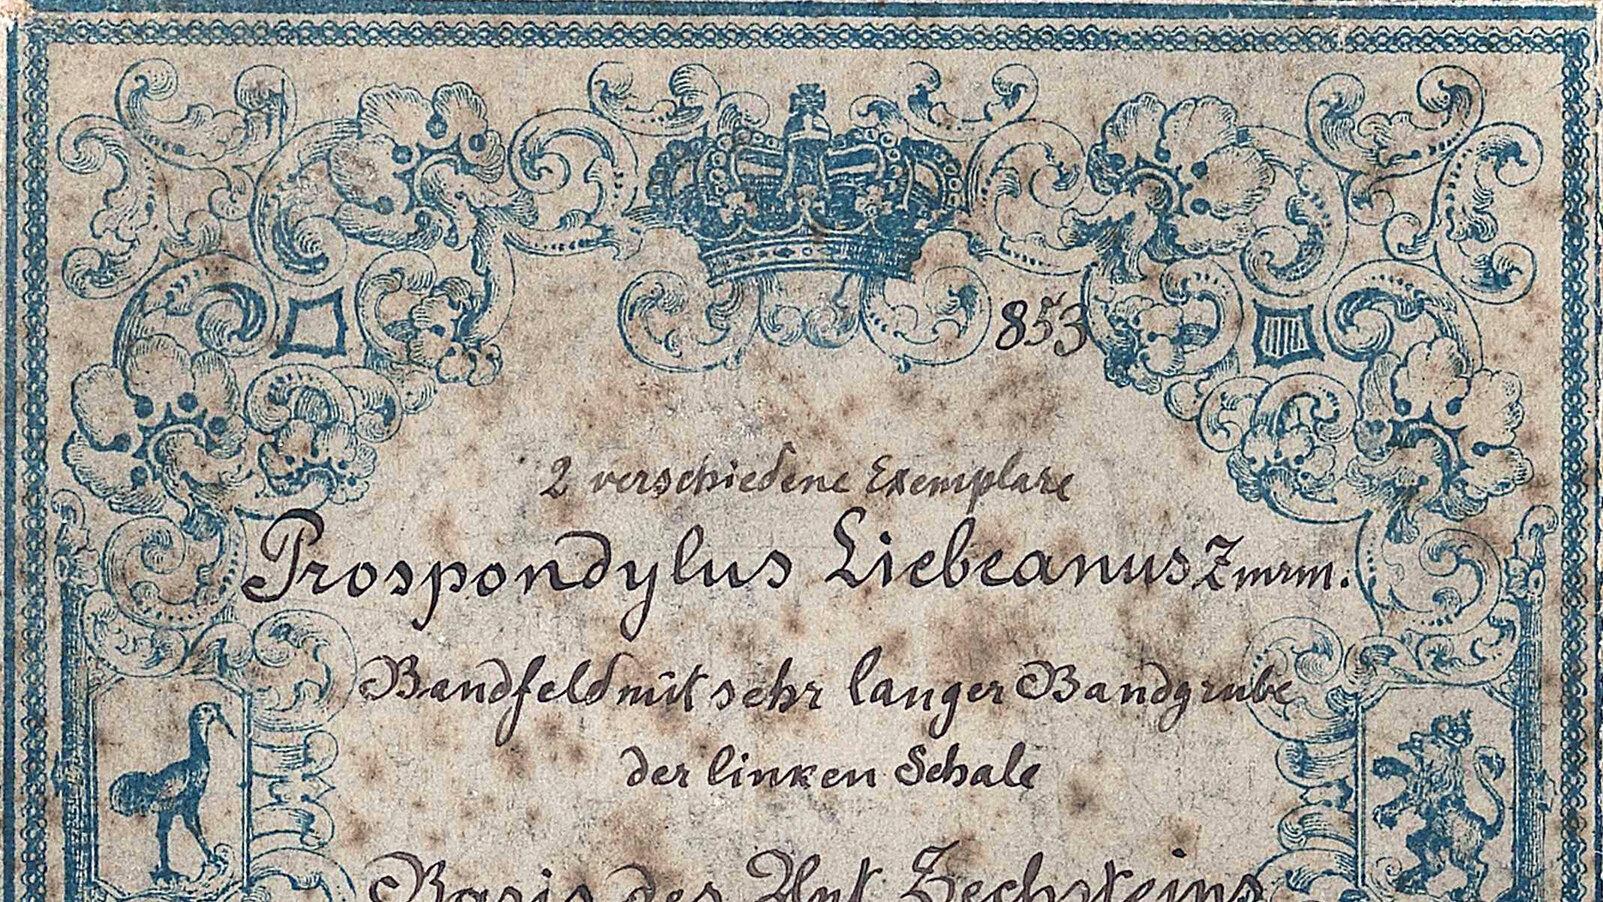 853
2 verschiedene Exemplare
Prospondylus Liebeanus Zmrm.
Bandfeld mit sehr langer Bandgrube
der linken Schale
Basis des Unt Zechsteins